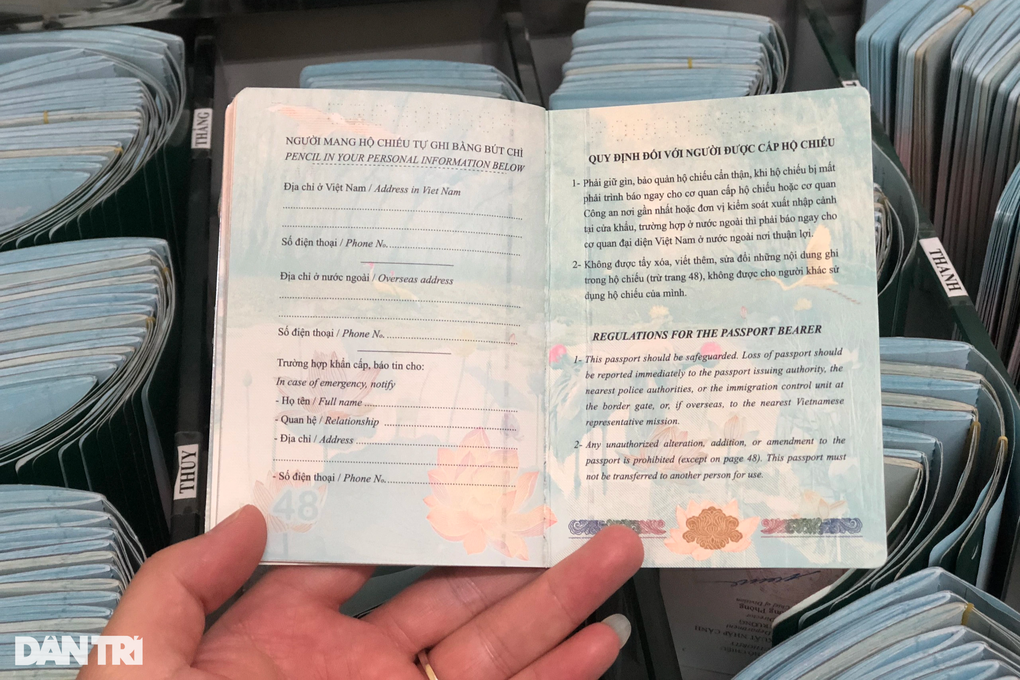 NGƯỜI MANG HỘ CHIẾU TỰ GHI BẰNG BÚT CHÌ
PENCIL IN YOUR PERSONAL INFORMATION BELOW
Địa chỉ ở Việt Nam / Address in Viet Nam
Số điện thoại / Phone No.
Địa chỉ ở nước ngoài / Overseas address
Số điện thoại / Phone No.
Trường hợp khẩn cấp, báo tin cho:
In case of emergency, notify
- Họ tên / Full name
- Quan hệ / Relationship
- Địa chỉ / Address
- Số điện thoại / Phone No.
48
QUY ĐỊNH ĐỐI VỚI NGƯỜI ĐƯỢC CẤP HỘ CHIẾU
1- Phải giữ gìn, bảo quản hộ chiếu cẩn thận, khi hộ chiếu bị mất
phải trình báo ngay cho cơ quan cấp hộ chiếu hoặc cơ quan
Công an nơi gần nhất hoặc đơn vị kiểm soát xuất nhập cảnh
tại cửa khẩu, trường hợp ở nước ngoài thì phải báo ngay cho
cơ quan đại diện Việt Nam ở nước ngoài nơi thuận lợi.
2- Không được tẩy xóa, viết thêm, sửa đổi những nội dung ghi
trong hộ chiếu (trừ trang 48), không được cho người khác sử
dụng hộ chiếu của mình.
REGULATIONS FOR THE PASSPORT BEARER
1- This passport should be safeguarded. Loss of passport should
be reported immediately to the passport issuing authority, the
nearest police authorities, or the immigration control unit at
the border gate, or, if overseas, to the nearest Vietnamese
representative mission.
2- Any unauthorized alteration, addition, or amendment to the
passport is prohibited (except on page 48). This passport must
not be transferred to another person for use.
THẮNG
THUỲ
THANH
DÂN TRÍ